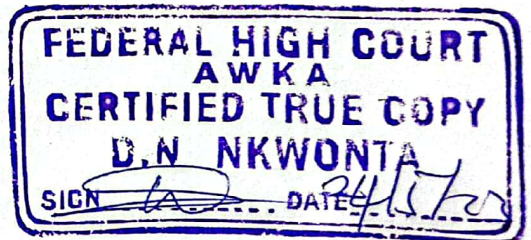 FEDERAL HIGH COURT
AWKA
CERTIFIED TRUE COPY
D.N NKWONTA
SIGN DATE